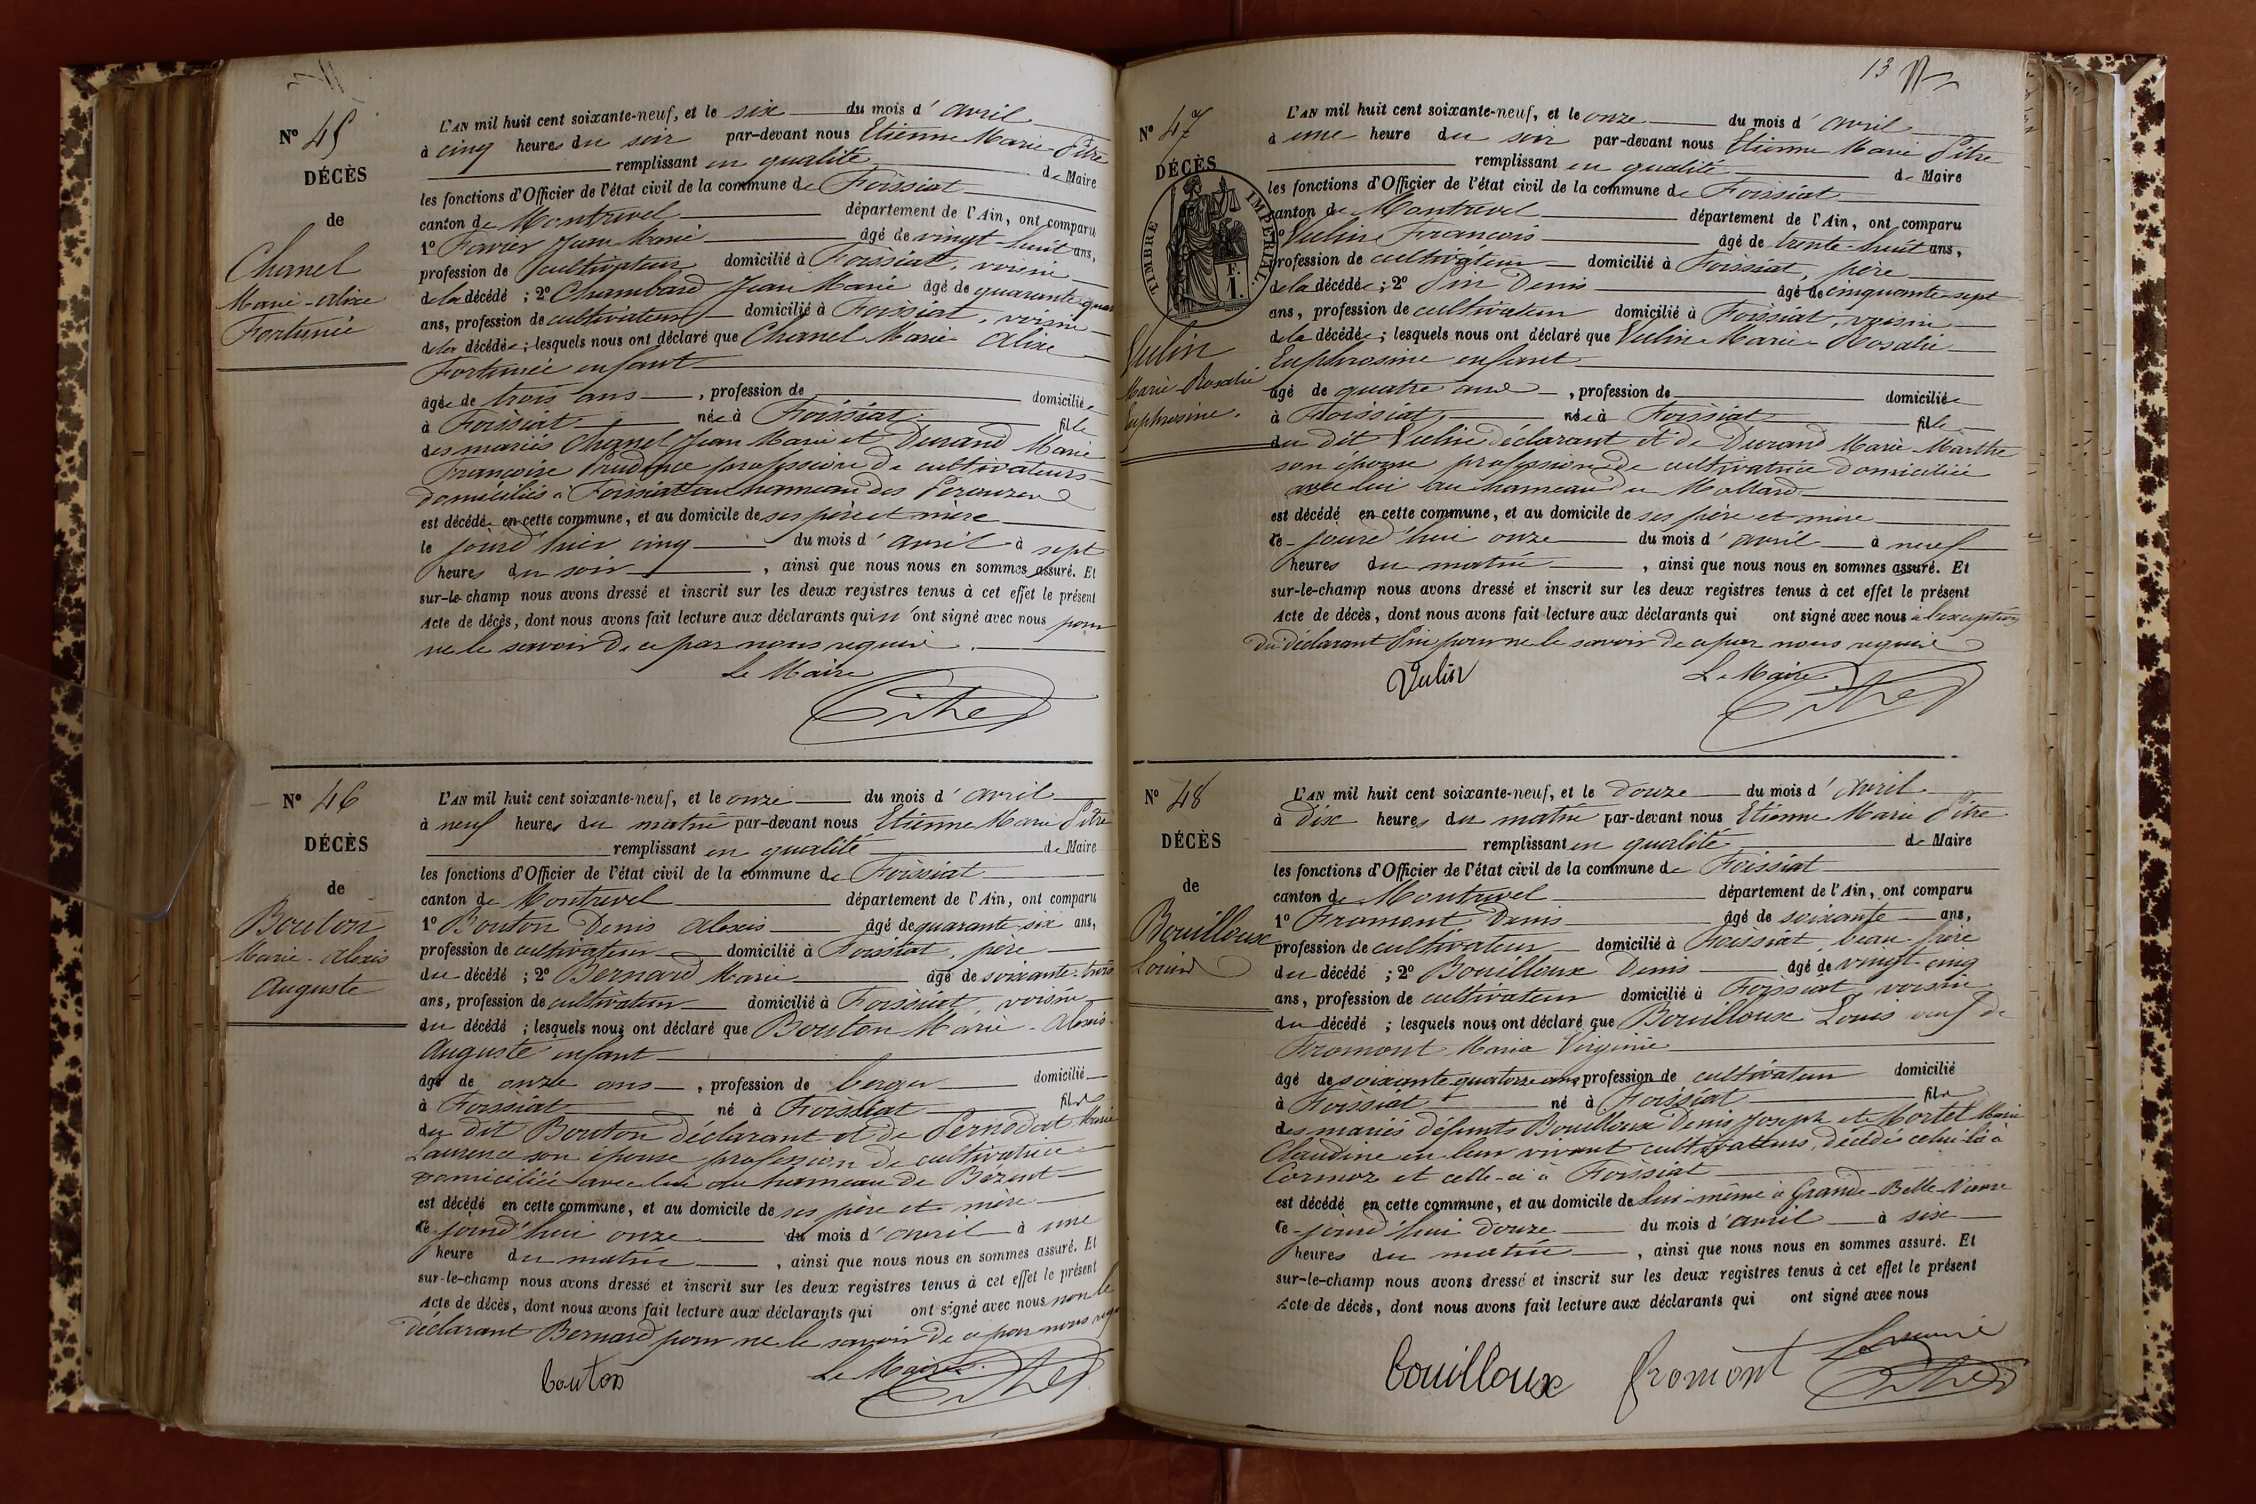 N° 45
DÉCÈS
de
Chanel
Marie-Alixe
Fortunée
L'AN mil huit cent soixante-neuf, et le six du mois d'avril
à cinq heures du soir par-devant nous Etienne Marie Pitre
remplissant en qualité de Maire
les fonctions d'Officier de l'état civil de la commune de Foissiat
canton de Montrevel département de l'Ain, ont comparu
1° Favier Jean Marie âgé de vingt-huit ans,
profession de cultivateur domicilié à Foissiat, voisin
de la décédé ; 2° Chambard Jean Marie âgé de quarante quatre
ans, profession de cultivateur domicilié à Foissiat, voisin
de la décédée ; lesquels nous ont déclaré que Chanel Marie Alixe
Fortunée enfant
âgée de trois ans, profession de domiciliée
à Foissiat née à Foissiat fille
des mariés Chanel Jean Marie et Durand Marie
Françoise Prudence profession de cultivateurs
domiciliés à Foissiat au hameau des
est décédé en cette commune, et au domicile de ses père et mère
le jourd'hier cinq du mois d'avril à sept
heures du soir, ainsi que nous nous en sommes assuré. Et
sur-le-champ nous avons dressé et inscrit sur les deux registres tenus à cet effet le présent
Acte de décès, dont nous avons fait lecture aux déclarants qui n'ont signé avec nous pour
ne le savoir de ce par nous requis.
Le Maire
Pitre
N° 46
DÉCÈS
de
Bouton
Marie-Alexis
Auguste
L'AN mil huit cent soixante-neuf, et le onze du mois d'avril
à neuf heures du matin par-devant nous Etienne Marie Pitre
remplissant en qualité de Maire
les fonctions d'Officier de l'état civil de la commune de Foissiat
canton de Montrevel département de l'Ain, ont comparu
1° Bouton Denis Alexis âgé de quarante six ans,
profession de cultivateur domicilié à Foissiat, père
du décédé ; 2° Bernard Marie âgé de soixante-trois
ans, profession de cultivateur domicilié à Foissiat, voisin
du décédé ; lesquels nous ont déclaré que Bouton Marie-Alexis
Auguste enfant
âgé de onze ans, profession de berger domicilié
à Foissiat né à Foissiat fils
du dit Bouton déclarant et de Pernodat Marie
Laurence son épouse profession de cultivatrice
domiciliée avec lui au hameau de Bézent
est décédé en cette commune, et au domicile de ses père et mère
ce jourd'hui onze du mois d'avril à une
heure du matin, ainsi que nous nous en sommes assuré. Et
sur-le-champ nous avons dressé et inscrit sur les deux registres tenus à cet effet le présent
Acte de décès, dont nous avons fait lecture aux déclarants qui ont signé avec nous non le
déclarant Bernard pour ne le savoir de ce par nous requis
bouton
Le Maire
Pitre
13
N° 47
DÉCÈS
TIMBRE IMPERIAL
1 F.
Vulin
Marie Rosalie
Euphrosine.
L'AN mil huit cent soixante-neuf, et le onze du mois d'avril
à une heure du soir par-devant nous Etienne Marie Pitre
remplissant en qualité de Maire
les fonctions d'Officier de l'état civil de la commune de Foissiat
canton de Montrevel département de l'Ain, ont comparu
Vulin François âgé de trente-huit ans,
profession de cultivateur domicilié à Foissiat, père
de la décédée ; 2° Pin Denis âgé de cinquante-sept
ans, profession de cultivateur domicilié à Foissiat, voisin
de la décédée ; lesquels nous ont déclaré que Vulin Marie-Rosalie
Euphrosine enfant
âgé de quatre ans, profession de domiciliée
à Foissiat, née à Foissiat fille
du dit Vulin déclarant et de Durand Marie Marthe
son épouse profession de cultivatrice domiciliée
avec lui au hameau du Mollard
est décédé en cette commune, et au domicile de ses père et mère
ce jourd'hui onze du mois d'avril à neuf
heures du matin, ainsi que nous nous en sommes assuré. Et
sur-le-champ nous avons dressé et inscrit sur les deux registres tenus à cet effet le présent
Acte de décès, dont nous avons fait lecture aux déclarants qui ont signé avec nous à l'exception
du déclarant Pin pour ne le savoir de ce par nous requis
Vulin
Le Maire
Pitre
N° 48
DÉCÈS
de
Bouilloux
Louis
L'AN mil huit cent soixante-neuf, et le douze du mois d'avril
à dix heures du matin par-devant nous Etienne Marie Pitre
remplissant en qualité de Maire
les fonctions d'Officier de l'état civil de la commune de Foissiat
canton de Montrevel département de l'Ain, ont comparu
1° Fromont Denis âgé de soixante ans,
profession de cultivateur domicilié à Foissiat, beau frère
du décédé ; 2° Bouilloux Denis âgé de vingt-cinq
ans, profession de cultivateur domicilié à Foissiat voisin
du décédé ; lesquels nous ont déclaré que Bouilloux Louis veuf de
Fromont Maria Virginie
âgé de soixante quatorze ans profession de cultivateur domicilié
à Foissiat né à Foissiat fils
des mariés défunts Bouilloux Denis Joseph et Mortel Marie
Claudine en leur vivant cultivateurs, décédés celui-là à
Cormoz et celle-ci à Foissiat
est décédé en cette commune, et au domicile de lui-même à Grande-Belle-Vavre
ce jourd'hui douze du mois d'avril à six
heures du matin, ainsi que nous nous en sommes assuré. Et
sur-le-champ nous avons dressé et inscrit sur les deux registres tenus à cet effet le présent
Acte de décès, dont nous avons fait lecture aux déclarants qui ont signé avec nous
bouilloux fromont Le maire
Pitre